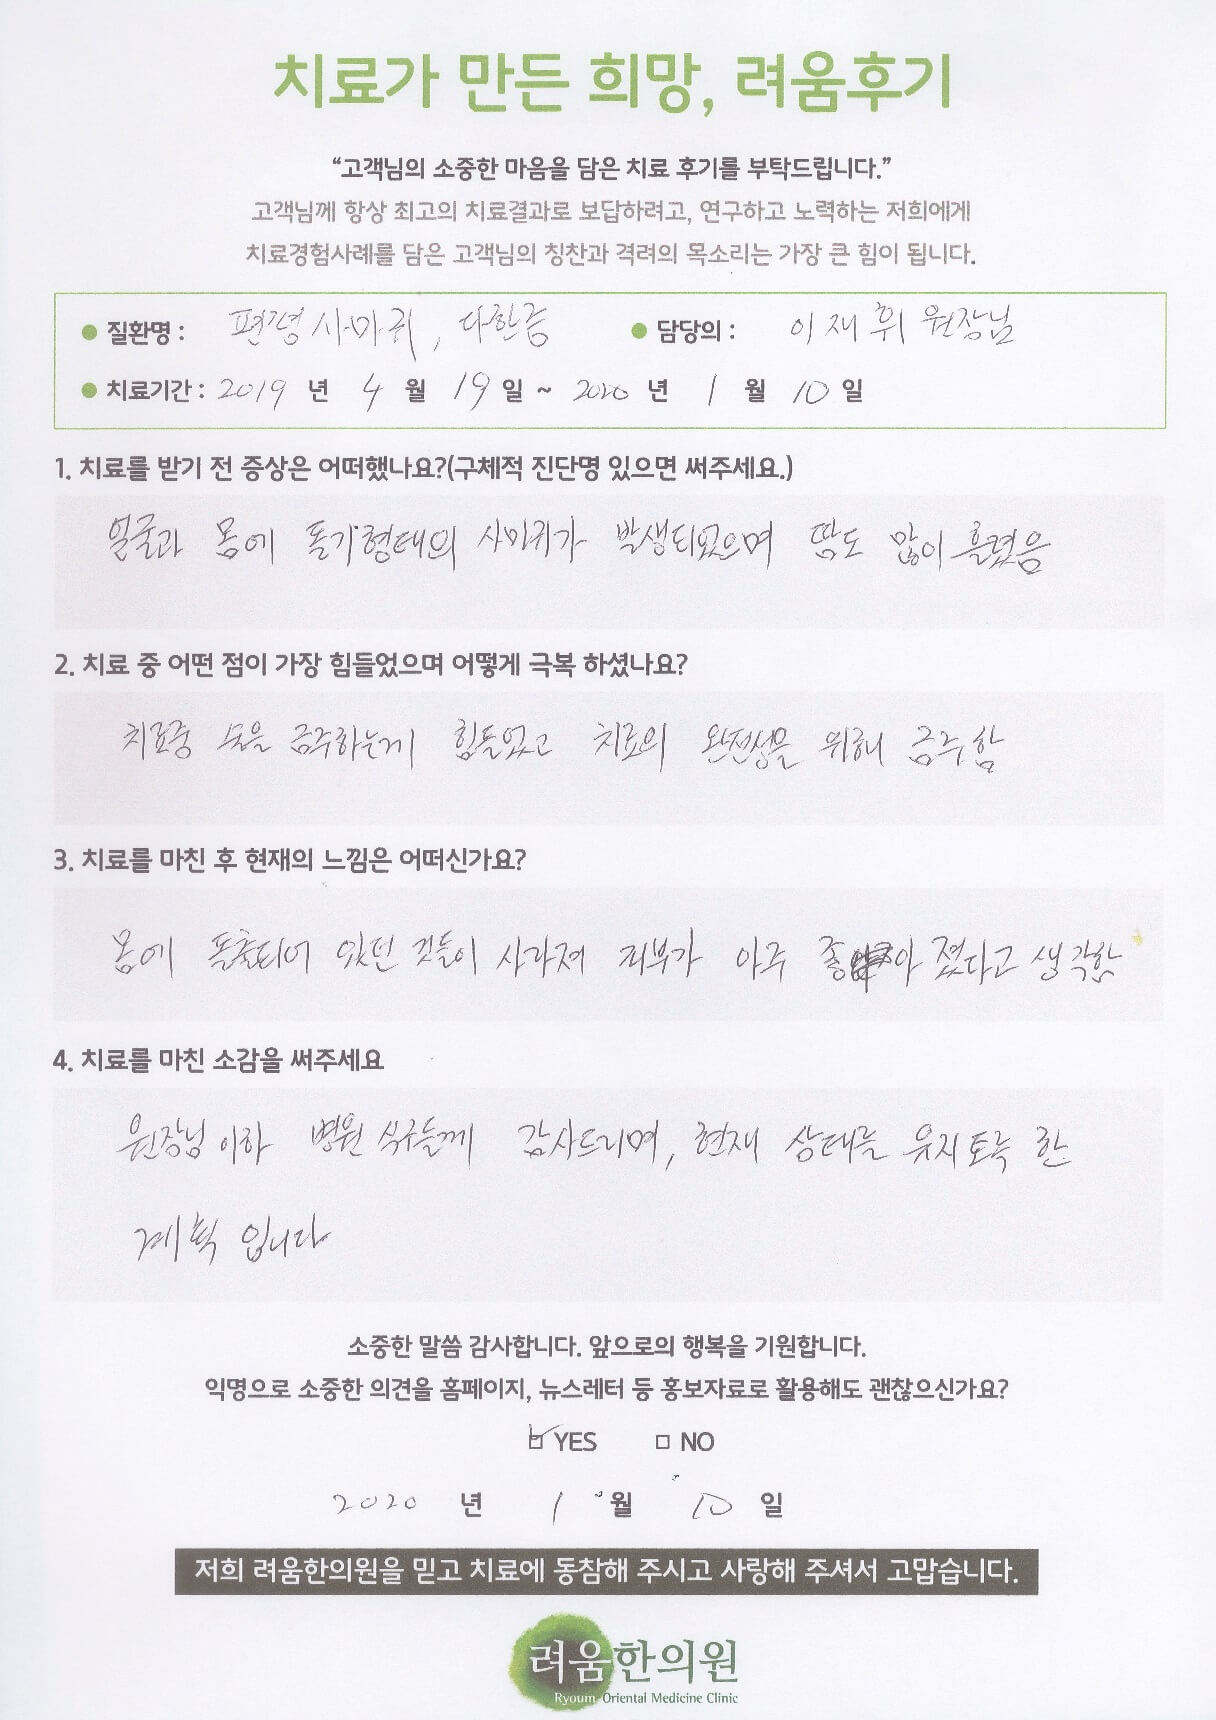 치료가 만든 희망, 려움후기
“고객님의 소중한 마음을 담은 치료 후기를 부탁드립니다.”
고객님께 항상 최고의 치료결과로 보답하려고, 연구하고 노력하는 저희에게
치료경험사례를 담은 고객님의 칭찬과 격려의 목소리는 가장 큰 힘이 됩니다.
● 질환명 : 편평사마귀, 다한증 ● 담당의 : 이재휘 원장님
● 치료기간 : 2019 년 4 월 19 일 ~ 2020 년 1 월 10 일
1. 치료를 받기 전 증상은 어떠했나요?(구체적 진단명 있으면 써주세요.)
얼굴과 몸에 돌기형태의 사마귀가 발생되었으며 땀도 많이 흘렸음
2. 치료 중 어떤 점이 가장 힘들었으며 어떻게 극복 하셨나요?
치료중 술을 금주하는게 힘들었고 치료의 완전성을 위해 금주함
3. 치료를 마친 후 현재의 느낌은 어떠신가요?
몸에 돌출되어 있던 것들이 사라져 피부가 아주 좋아졌다고 생각함
4. 치료를 마친 소감을 써주세요
원장님 이하 병원 식구들께 감사드리며, 현재 상태를 유지토록 한
계획 입니다
소중한 말씀 감사합니다. 앞으로의 행복을 기원합니다.
익명으로 소중한 의견을 홈페이지, 뉴스레터 등 홍보자료로 활용해도 괜찮으신가요?
☑ YES □ NO
2020 년 1 월 10 일
저희 려움한의원을 믿고 치료에 동참해 주시고 사랑해 주셔서 고맙습니다.
려움한의원
Ryoum Oriental Medicine Clinic